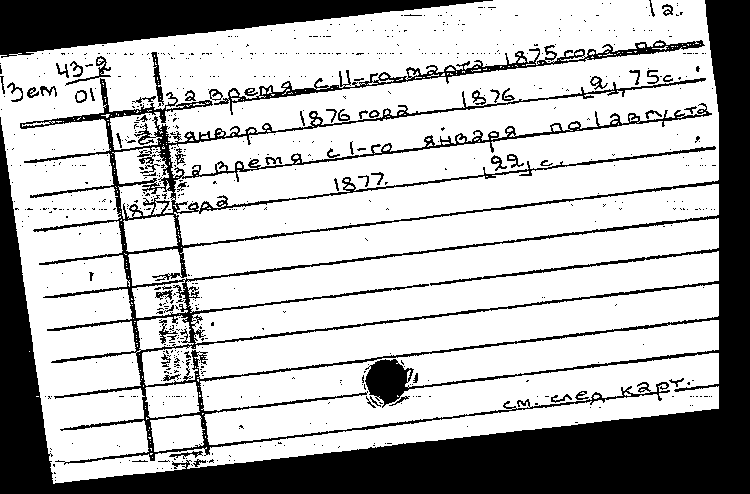 1а.
Зем 43-2
01
за время с 11-го марта 1875 года по
1-е января 1876 года. 1876. [2], 75 с.
за время с 1-го января по 1 августа
1877 года 1877. [22] с.
см. след карт.